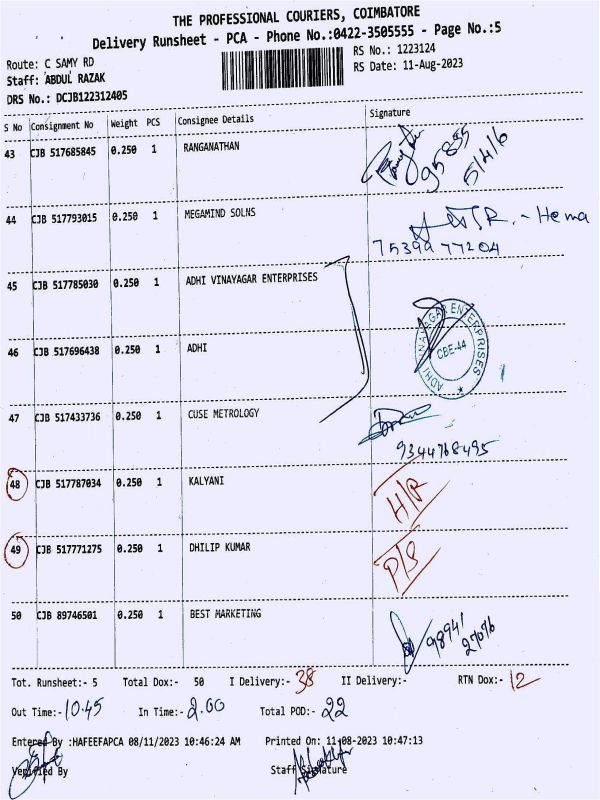 THE PROFESSIONAL COURIERS, COIMBATORE
Delivery Runsheet - PCA - Phone No.:0422-3505555 - Page No.:5
Route: C SAMY RD
RS No.: 1223124
Staff: ABDUL RAZAK
RS Date: 11-Aug-2023
DRS No.: DCJB122312405
S No Consignment No Weight PCS Consignee Details Signature
43 CJB 517685845 0.250 1 RANGANATHAN
95855
5/4/6
44 CJB 517793015 0.250 1 MEGAMIND SOLNS
R.- Hema
7539977204
45 CJB 517785030 0.250 1 ADHI VINAYAGAR ENTERPRISES
ADHI VINAYAGAR ENTERPRISES
CBE-44
46 CJB 517696438 0.250 1 ADHI
47 CJB 517433736 0.250 1 CUSE METROLOGY
9344768495
48 CJB 517787034 0.250 1 KALYANI
H/R
49 CJB 517771275 0.250 1 DHILIP KUMAR
P/S
50 CJB 89746501 0.250 1 BEST MARKETING
98941
27076
Tot. Runsheet:- 5 Total Dox:- 50 I Delivery:- 38 II Delivery:- RTN Dox:- 12
Out Time:- 10.45 In Time:- 2.00 Total POD:- 22
Entered By :HAFEEFAPCA 08/11/2023 10:46:24 AM Printed On: 11-08-2023 10:47:13
Verified By Staff Signature